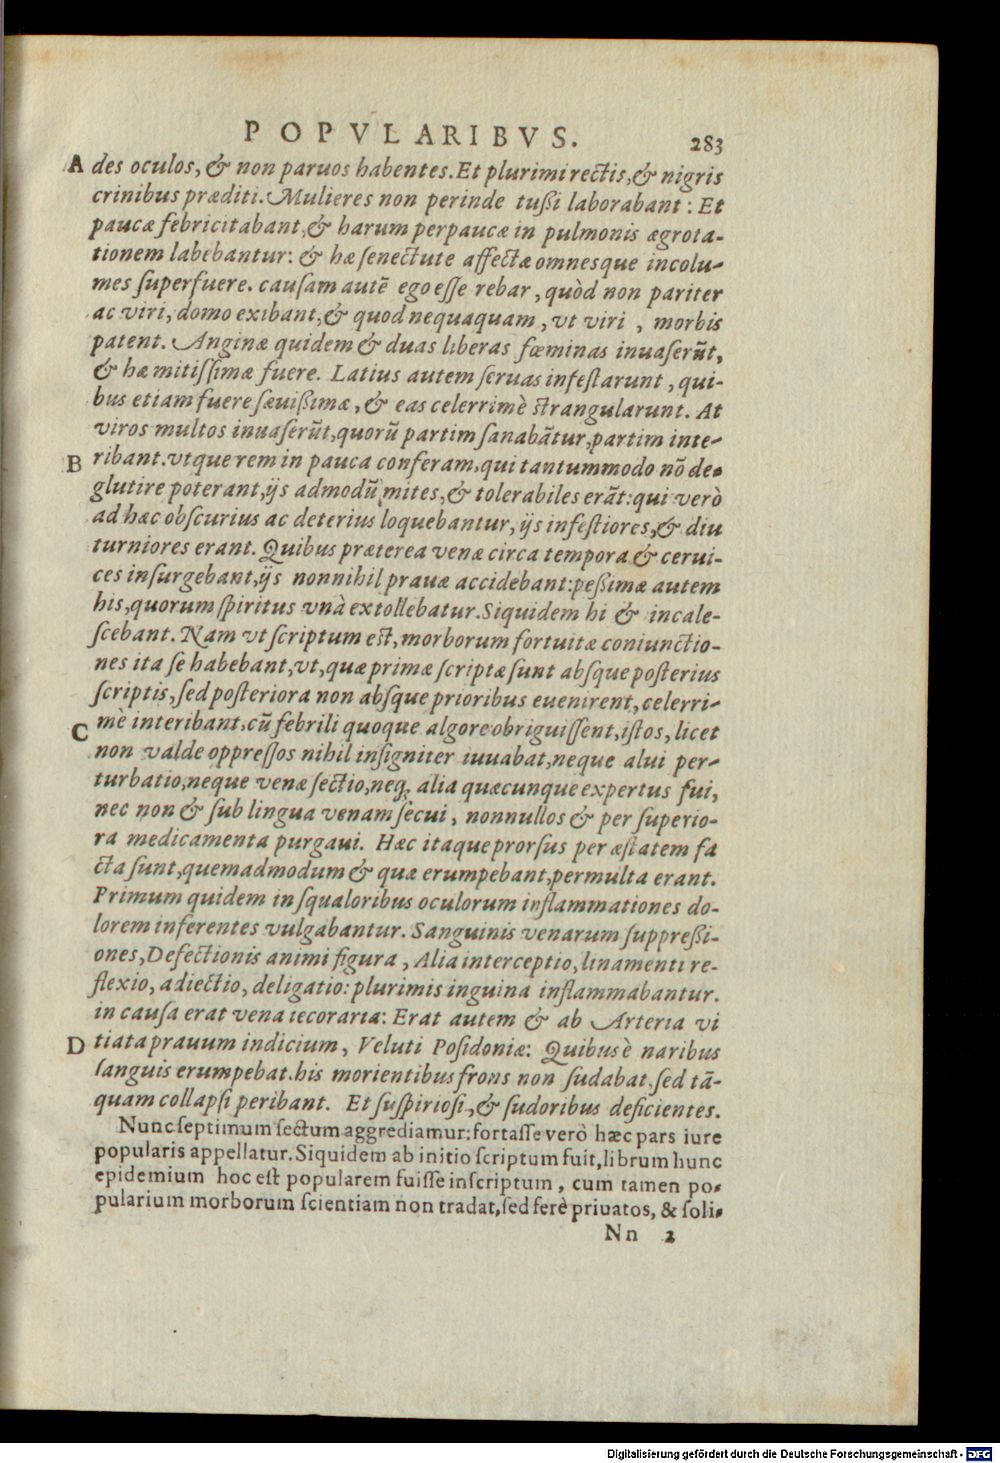 POPVLARIBVS. 283
A des oculos, & non paruos habentes. Et plurimi rectis, & nigris
crinibus præditi. Mulieres non perinde tußi laborabant: Et
paucæ febricitabant, & harum perpaucæ in pulmonis ægrota-
tionem labebantur: & hæ senectute affectæ omnesque incolu-
mes superfuere. causam autē ego esse rebar, quòd non pariter
ac viri, domo exibant, & quod nequaquam, vt viri, morbis
patent. Anginæ quidem & duas liberas fœminas inuaserūt,
& hæ mitissimæ fuere. Latius autem seruas infestarunt, qui-
bus etiam fuere sæuißimæ, & eas celerrimè strangularunt. At
viros multos inuaserūt, quorū partim sanabātur, partim inte-
B ribant. vtque rem in pauca conferam, qui tantummodo nō de-
glutire poterant, ijs admodū mites, & tolerabiles erāt: qui verò
ad hæc obscurius ac deterius loquebantur, ijs infestiores, & diu
turniores erant. Quibus præterea venæ circa tempora & cerui-
ces insurgebant, ijs nonnihil prauæ accidebant: peßimæ autem
his, quorum spiritus vnà extollebatur. Siquidem hi & incale-
scebant. Nam vt scriptum est, morborum fortuitæ coniunctio-
nes ita se habebant, vt, quæ primæ scriptæ sunt absque posterius
scriptis, sed posteriora non absque prioribus euenirent, celerri-
C mè interibant. cū febrili quoque algore obriguissent, istos, licet
non valde oppressos nihil insigniter iuuabat, neque alui per-
turbatio, neque venæ sectio, neq; alia quæcunque expertus fui,
nec non & sub lingua venam secui, nonnullos & per superio-
ra medicamenta purgaui. Hæc itaque prorsus per æstatem fa
cta sunt, quemadmodum & quæ erumpebant, permulta erant.
Primum quidem in squaloribus oculorum inflammationes do-
lorem inferentes vulgabantur. Sanguinis venarum suppreßi-
ones, Defectionis animi figura, Alia interceptio, linamenti re-
flexio, adiectio, deligatio: plurimis inguina inflammabantur.
in causa erat vena iecoraria: Erat autem & ab Arteria vi
D tiata prauum indicium, Veluti Posidoniæ: Quibus è naribus
sanguis erumpebat. his morientibus frons non sudabat, sed tā-
quam collapsi peribant. Et suspiriosi, & sudoribus deficientes.
Nunc septimum sectum aggrediamur: fortasse verò hæc pars iure
popularis appellatur. Siquidem ab initio scriptum fuit, librum hunc
epidemium hoc est popularem fuisse inscriptum, cum tamen po-
pularium morborum scientiam non tradat, sed ferè priuatos, & soli-
Nn 2
Digitalisierung gefördert durch die Deutsche Forschungsgemeinschaft - DFG